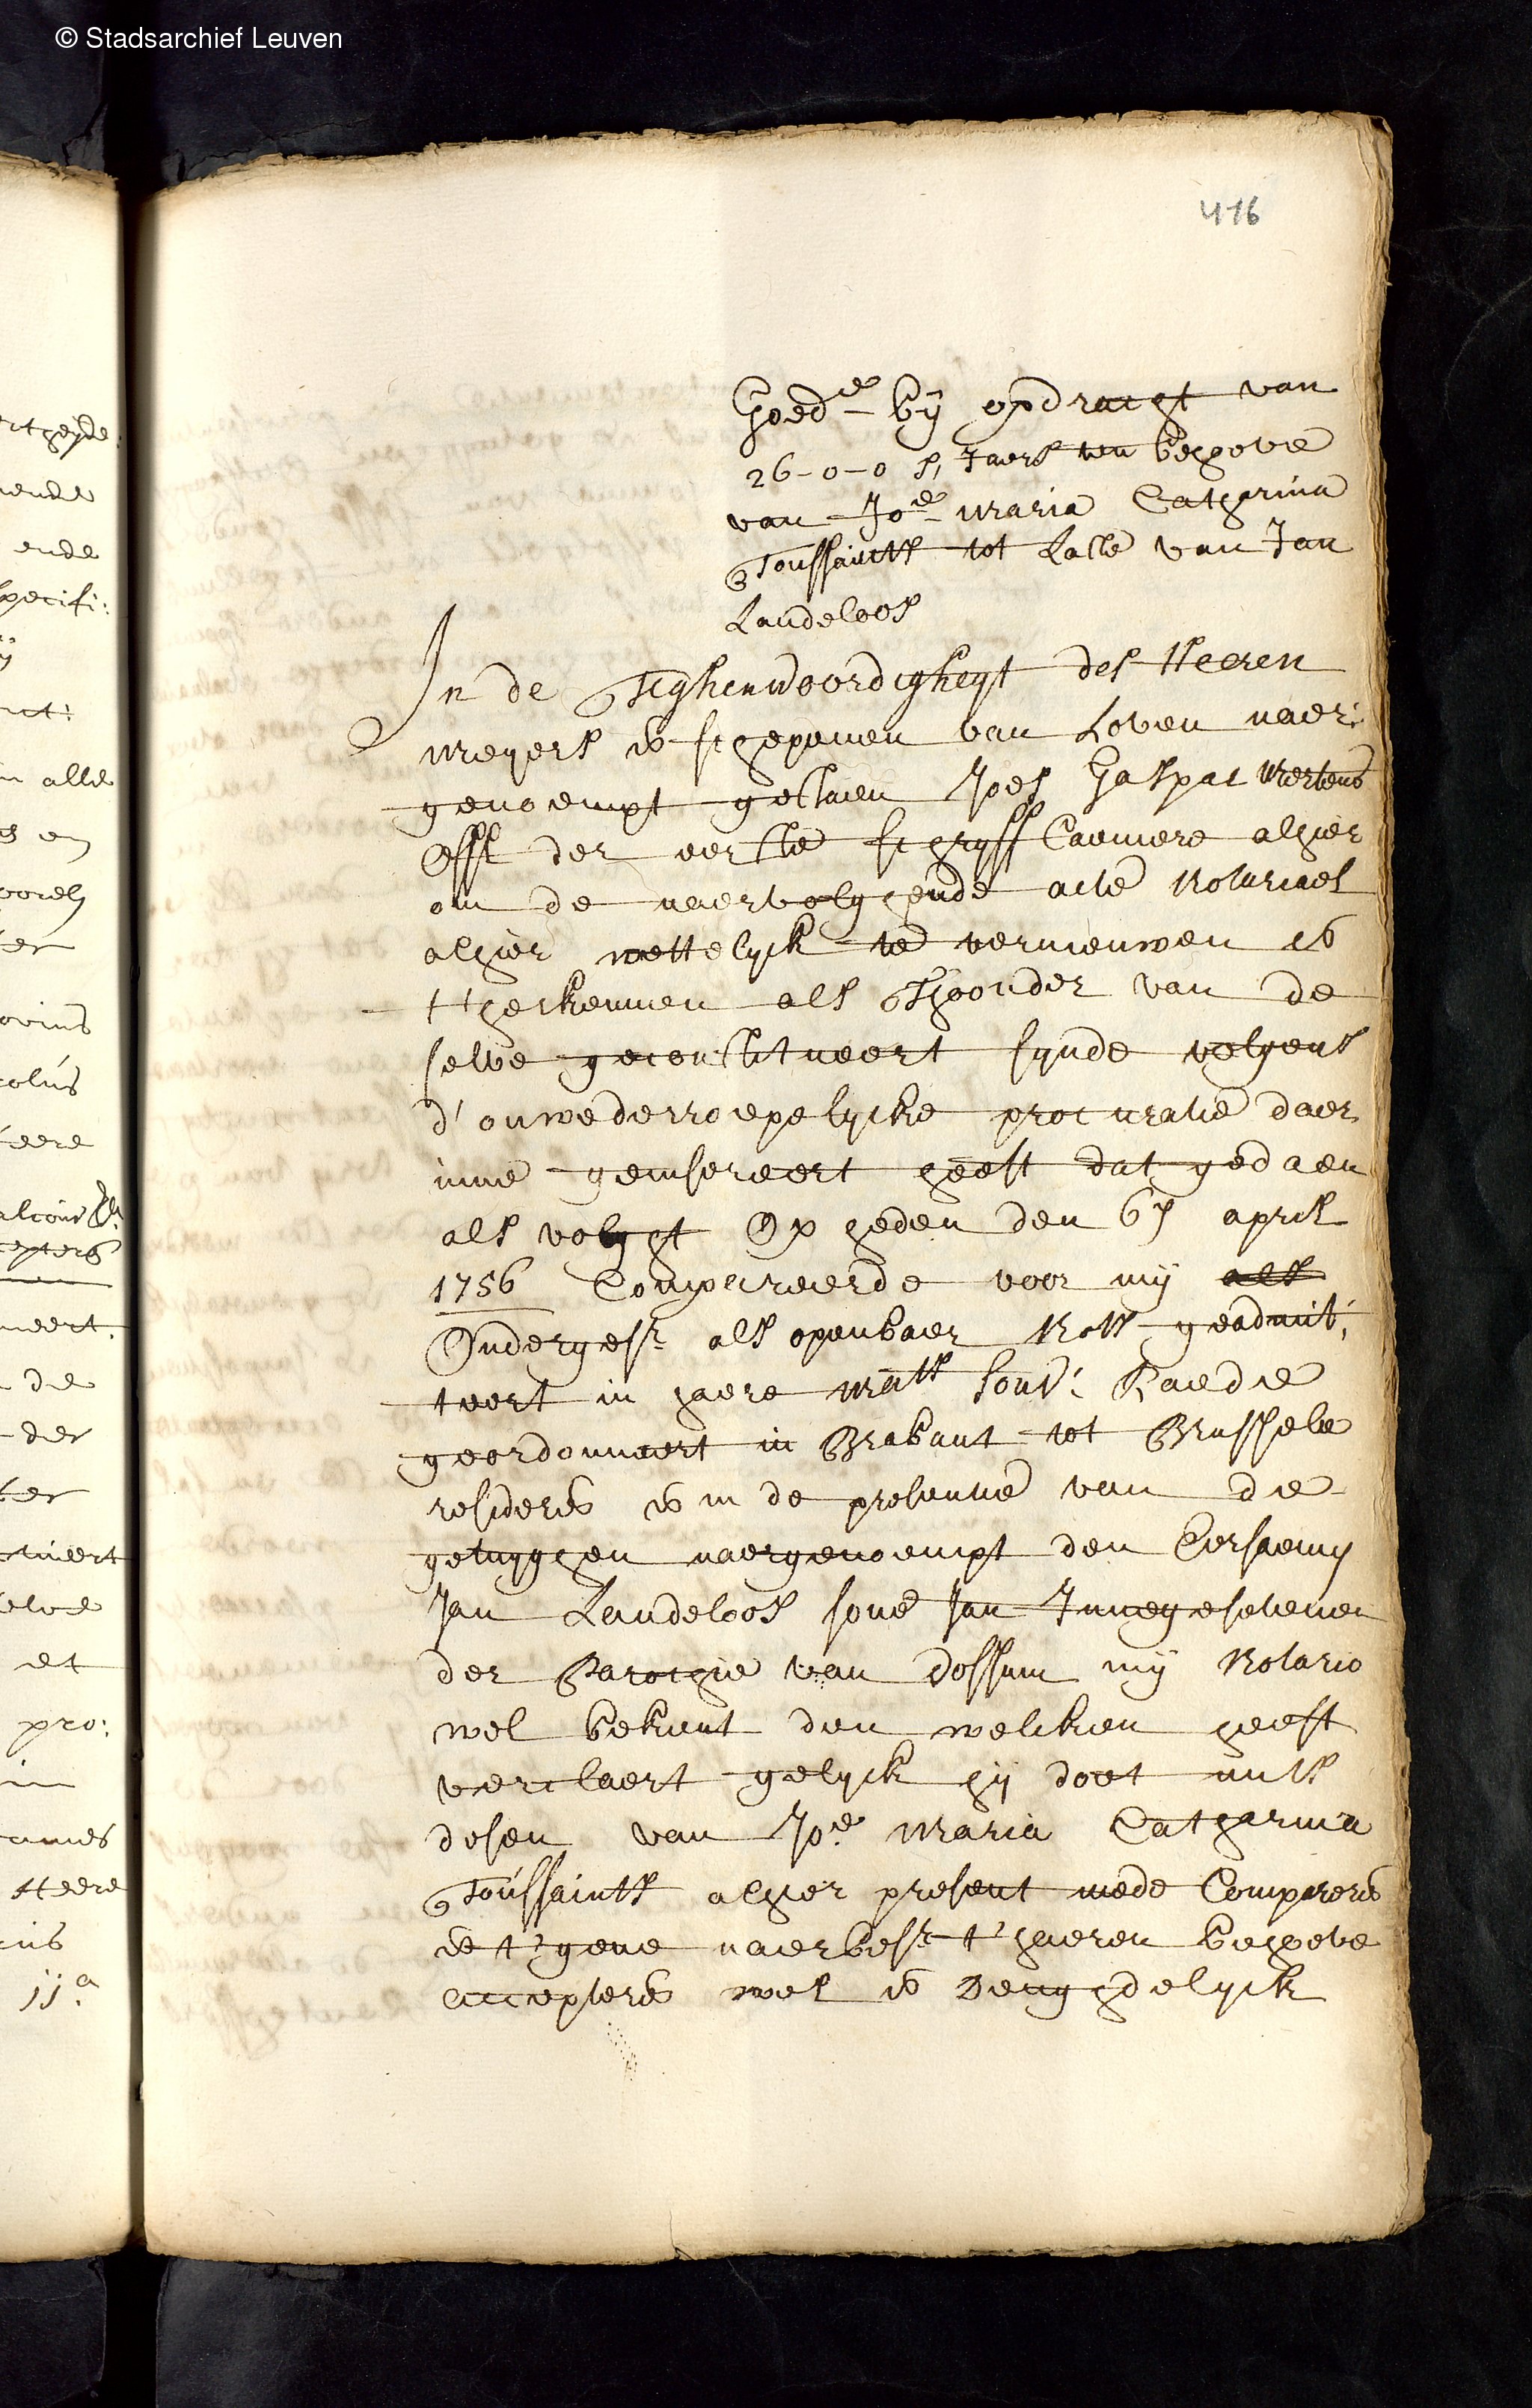 © Stadsarchief Leuven
416
Goede by opdracht van
26-0-0 s, Jaers ten behoeve
van Joe Maria Catharina
Toussaints tot Laste van Jan
Landeloos
In de Teghenwoordigheyt des Heeren
Meyers en schepenen van Loven naer:
genoempt gestaen Joes Gaspar Mertens
Offl der eerste schryff Caemere alhier
om de naervolghende acte Notariael
alhier wettelyck te vernieuwen en
t'herkennen als Thoonder van de
selve geconstitueert synde volgens
d'onwederroepelycke procuratie daer
inne geinsereert heeft dat gedaen
als volght Op heden den 6s april
1756 Compareerde voor my als
Ondergesr als openbaer Nots geadmit:
teert in haere Mats sou: Raede
geordonneert in Brabant tot Brussele
resideren en in de presentie van de
getuyghen naergenoempt den Eersaemen
Jan Landeloos sone Jan Innegesetenen
der Parochie van Dossum my Notario
wel bekent den welcken heeft
verclaert gelyck hy doet mits
desen van Joe Maria Catharina
Toussaints alhier present mede Comparere
en t'gene naerbesr t'haeren behoeve
accepteren wel en Deughdelyck